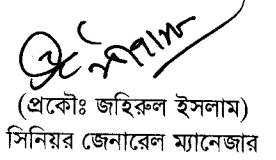 (প্রকৌঃ জহিরুল ইসলাম)
সিনিয়র জেনারেল ম্যানেজার